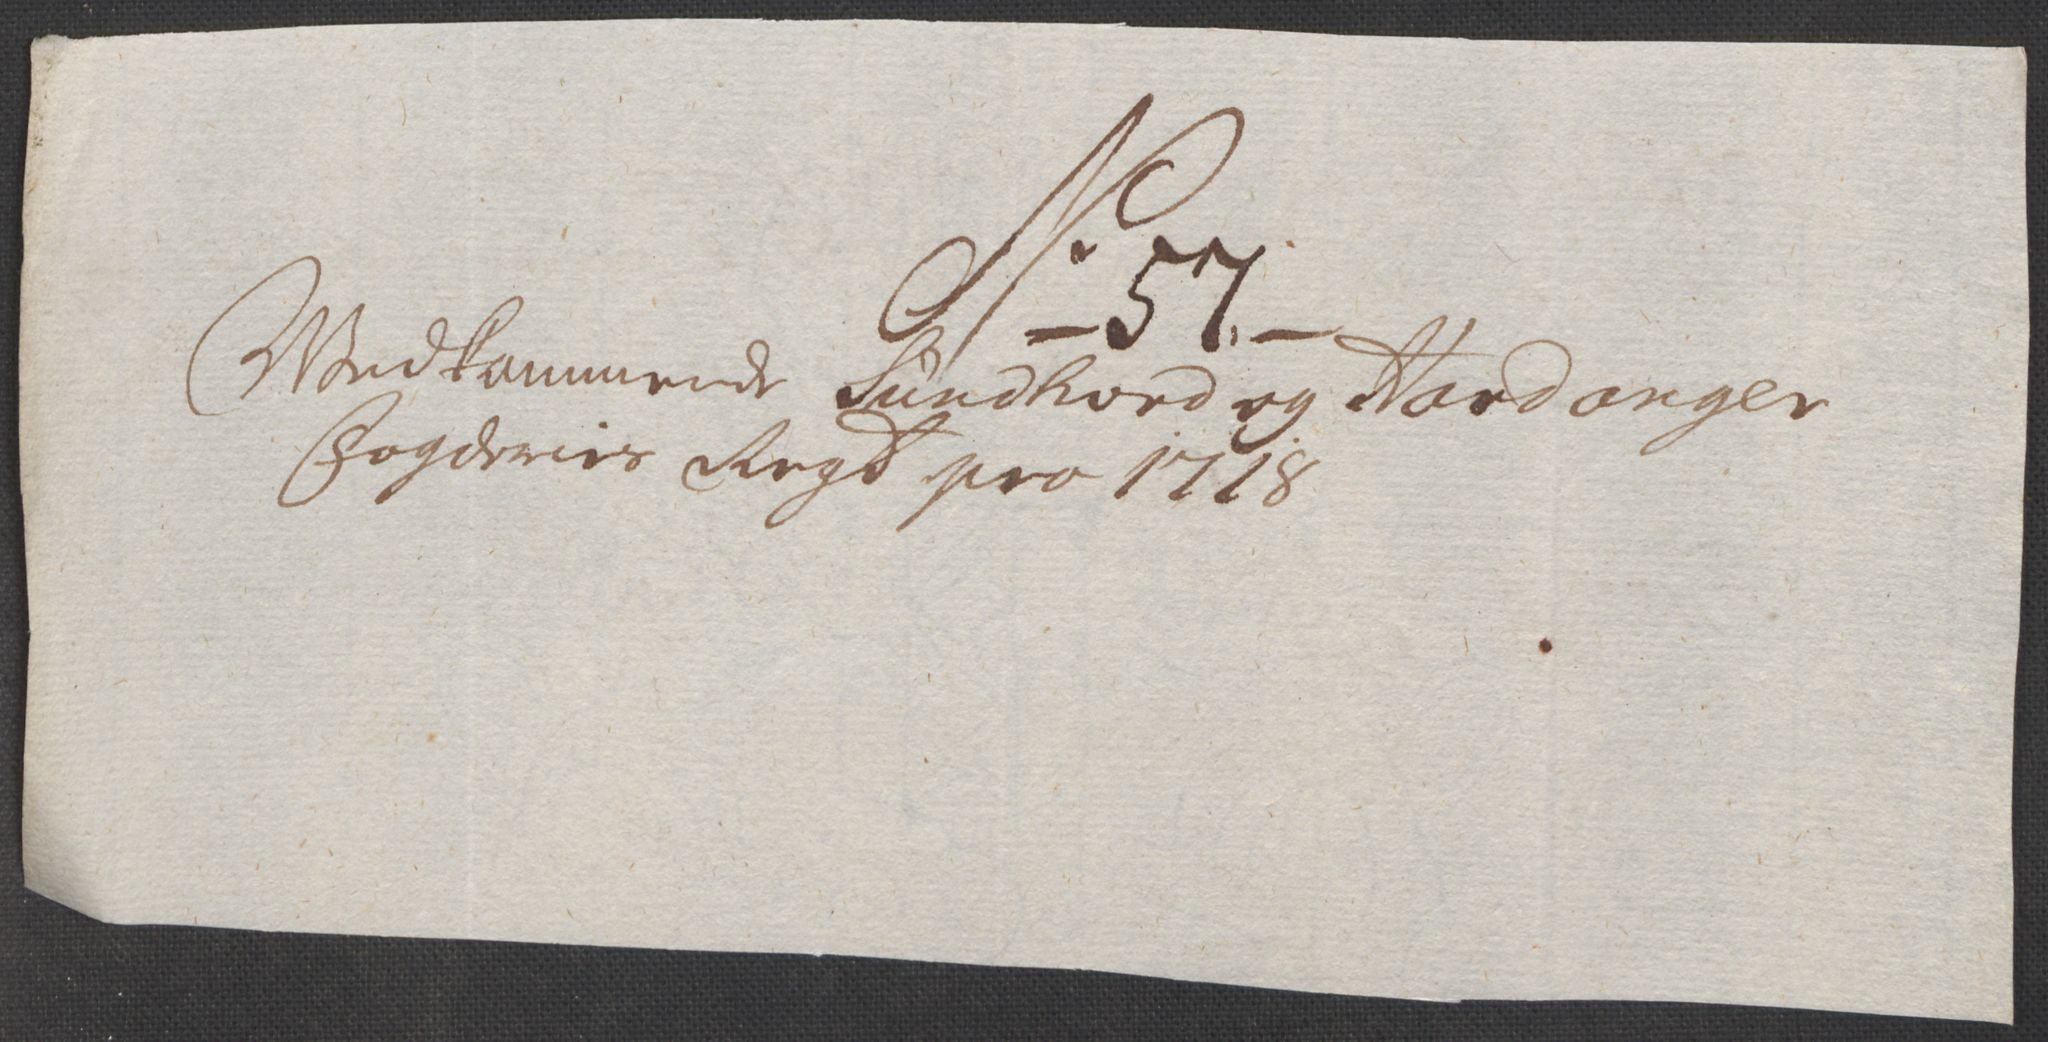 No
- 57. -
Wedkommende Sundhord og Hardanger
Fogderies Regsk pro 1718